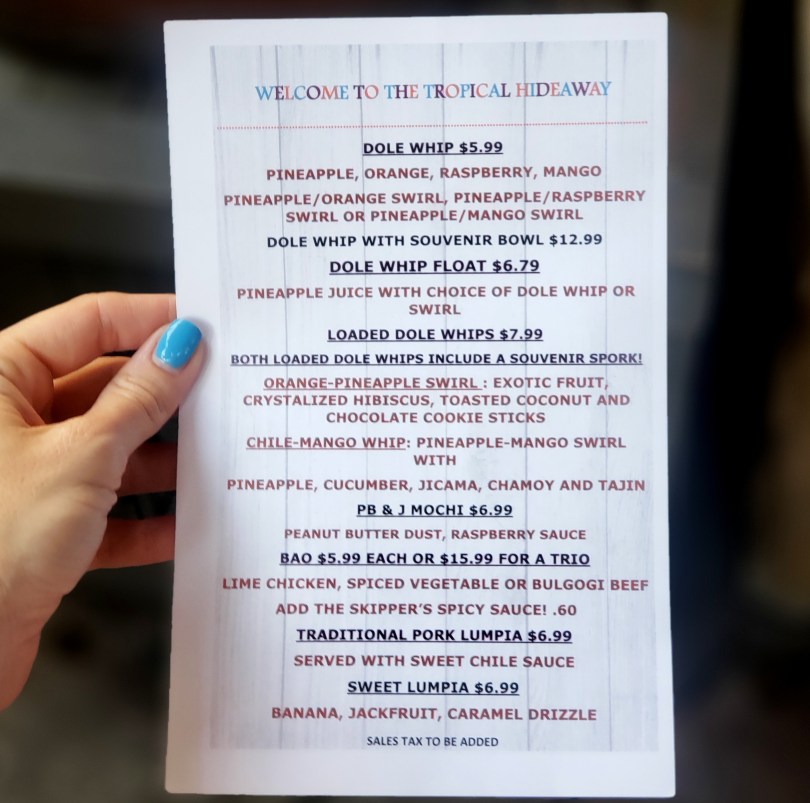 WELCOME TO THE TROPICAL HIDEAWAY
DOLE WHIP $5.99
PINEAPPLE, ORANGE, RASPBERRY, MANGO
PINEAPPLE/ORANGE SWIRL, PINEAPPLE/RASPBERRY
SWIRL OR PINEAPPLE/MANGO SWIRL
DOLE WHIP WITH SOUVENIR BOWL $12.99
DOLE WHIP FLOAT $6.79
PINEAPPLE JUICE WITH CHOICE OF DOLE WHIP OR
SWIRL
LOADED DOLE WHIPS $7.99
BOTH LOADED DOLE WHIPS INCLUDE A SOUVENIR SPORK!
ORANGE-PINEAPPLE SWIRL : EXOTIC FRUIT,
CRYSTALIZED HIBISCUS, TOASTED COCONUT AND
CHOCOLATE COOKIE STICKS
CHILE-MANGO WHIP: PINEAPPLE-MANGO SWIRL
WITH
PINEAPPLE, CUCUMBER, JICAMA, CHAMOY AND TAJIN
PB & J MOCHI $6.99
PEANUT BUTTER DUST, RASPBERRY SAUCE
BAO $5.99 EACH OR $15.99 FOR A TRIO
LIME CHICKEN, SPICED VEGETABLE OR BULGOGI BEEF
ADD THE SKIPPER'S SPICY SAUCE! .60
TRADITIONAL PORK LUMPIA $6.99
SERVED WITH SWEET CHILE SAUCE
SWEET LUMPIA $6.99
BANANA, JACKFRUIT, CARAMEL DRIZZLE
SALES TAX TO BE ADDED